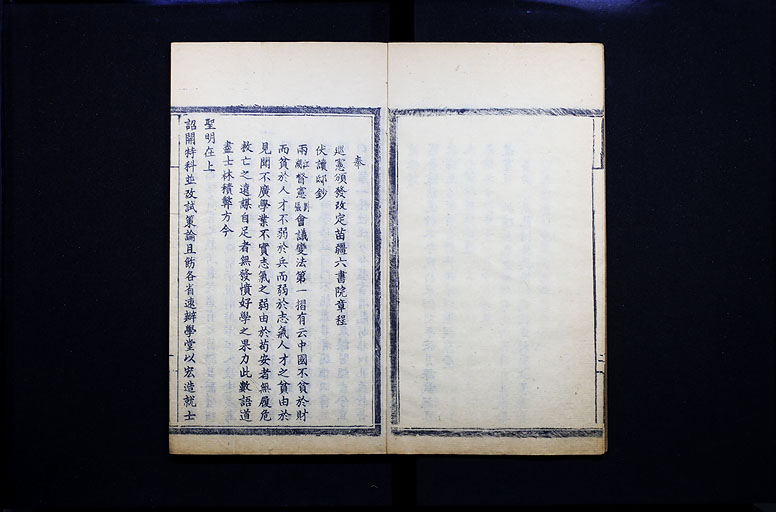 奉
巡憲頒發改定苗疆六書院章程
伏讀邸鈔
兩江湖督憲劉張會議變法第一摺有云中國不貧於財
而貧於人才不弱於兵而弱於志氣人才之貧由於
見聞不廣學業不實志氣之弱由於苟安者無履危
救亡之遠謀自足者無發憤好學之果力此數語道
盡士林積弊方今
聖明在上
詔開特科並改試策論且飭各省速辦學堂以宏造就士